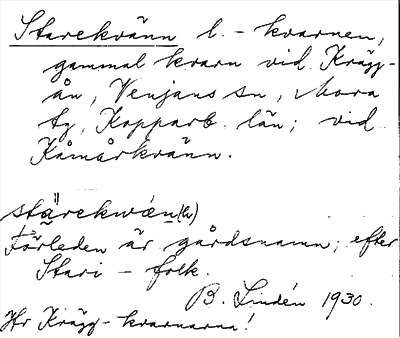 Starekvänn l. - kvarnen,
gammal kvarn vid Krägg-
ån, Venjans sn, Mora
tg, Kopparb. län; vid
Kåmårkvänn.
stärekwén(ḥ)
Förleden är gårdsnamn; efter
Stari - folk.
B. Lindén 1930.
Hr Krägg-kvarnarna!